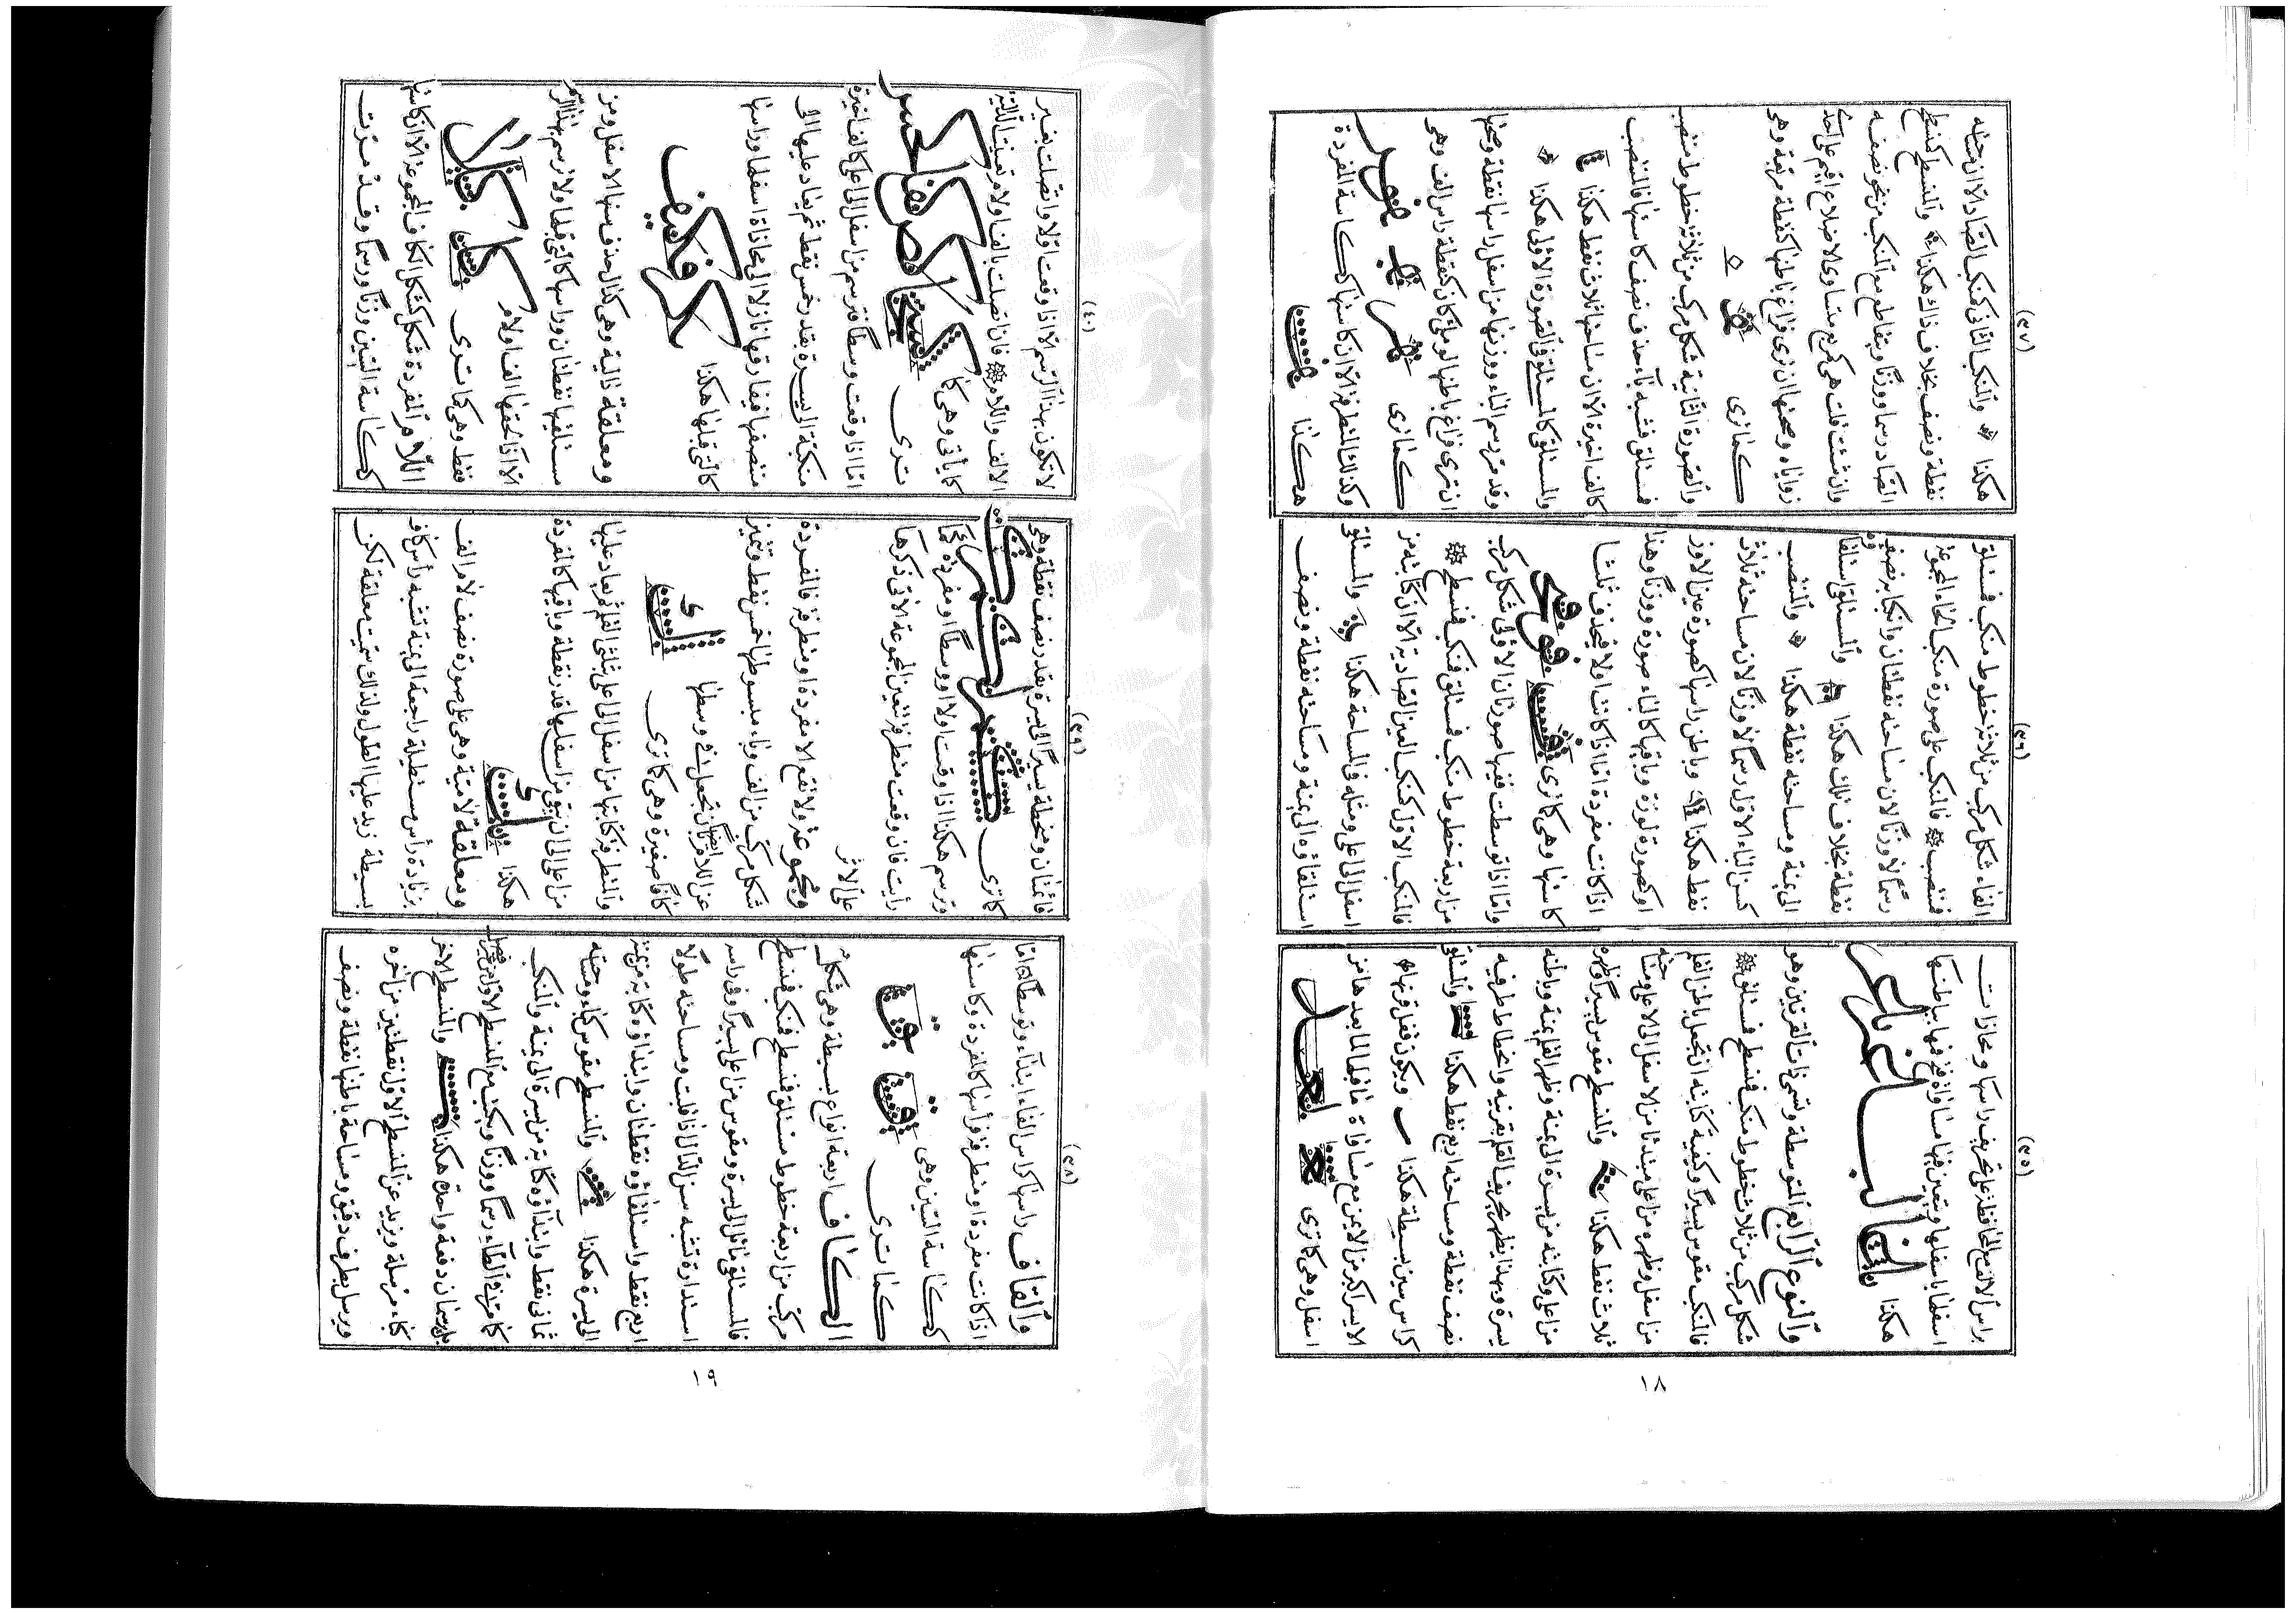 (٣٥)
براس الالف مع المحافظة على تحريف راسها ومحاذات
اسفلها باسفلها ويتعين فيها مساواة فرغ فمها بباطنها
هكذا
والنوع الرابع المتوسطة وتسمى ذات القرنين وهو
شكل مركب من ثلاث خطوط منكب فمنسطح فمستلق
فالمنكب مقوس يسيرا وكيفية كتابته ان تجعل باطن القلم
من اسفل وظهره من اعلى مبتدئا من الاسفل الى الاعلى ومساحته
ثلاث نقط هكذا والمنسطح مقوس يسيرا وظهره
من اعلى وكتابته من يسرة الى يمنة وظهر القلم يمنة وباطنه
يسرة وبهذا يظهر تحريف القلم بقرنيه وانحطاط طرفيه
نصف نقطة ومساحته اربع نقط هكذا والمستلق
كراس سين بسيطة هكذا ويكون قفل قرنها
الايسر اكبر من الايمن مع مساواة ما قبلها لما بعدها من
اسفل وهى كما ترى
(٣٦)
الفاء شكل مركب من ثلاثة خطوط منكب فمستلق
فمنتصب فالمنكب على صورة منكب الخاء المجموعة
رسما لا وزنا لان مساحته نقطتان وانكبابه نصف
نقطة بخلاف تلك هكذا والمستلق استلقاؤه
الى يمنة ومساحته نقطة هكذا والمنتصب
كسن الباء الاول رسما لا وزنا لان مساحته ثلاث
نقط هكذا وباطن راسها كصورة عين الاوز
او كصورة لوزة وباقيها كالباء صورة ووزنا وهذا
اذا كانت مفردة اما اذا كانت اولا فيحذف ثلثا
كاستها وهى كما ترى
واما اذا توسطت ففيها صورتان الاولى شكل مركب
من اربعة خطوط منكب فمستلق فمنكب فمنسطح
فالمنكب الاول كمنكب العين الصادية الا ان كتابته من
اسفل الى اعلى ومثله فى المساحة هكذا والمستلق
استلقاؤه الى يمنة ومساحته نقطة ونصف
(٣٧)
هكذا والمنكب الثانى كمنكب الصاد الا ان مساحته
نقطة ونصف بخلاف ذاك هكذا والمنسطح كمنسطح
الصاد رسما ووزنا ويتقاطع مع المنكب من نحو نصفه
وان شئت قلت هى كمربع متساوى الاضلاع اقيم على احدى
زواياه وصحنها ان ترى فراغ باطنها كنقطة مربعة وهى
كما ترى
والصورة الثانية شكل مركب من ثلاثة خطوط منتصب
فمستلق فشبه باء حذف نصف كاستها فالمنتصب
كالف اخيرة الا ان مساحتها ثلاث نقط هكذا
والمستلق كالمستلق فى الصورة الاولى هكذا
وقد مر رسم الباء ووزنها من اسفل راسها نقطة وصحنها
ان ترى فراغ باطنها لوملئ كان كنقطة راس الف وهى
كما ترى
وكذلك المتطرفة الا ان كاستها كحكاسة المفردة
هكذا
١٨
(٣٨)
والقاف راسها كراس الفاء ابتداء وتوسطا اما
اذا كانت مفردة او متطرفة فرأسها كالمفردة وكاستها
كحكاسة السين وهى
كما ترى
الكاف اربعة انواع بسيطة وهى شكل
مركب من اربعة خطوط مستلق فمنسطح فمنكب فمنسطح
فالمستلق مائل الى يسرة ومقوس من اعلى يسيرا وفى راسه
استدارة تشبه سن الدال اذا قلبت ومساحته طولا
اربع نقط واستلقاؤه نقطتان وابتداؤه كتابة من يمنة
الى يسرة هكذا والمنسطح مقوس كباء ومساحته
ثمانى نقط وابتداؤه كتابة من يسرة الى يمنة والمنكب
كما مر فى الطاء رسما ووزنا ويكتب مع المنسطح الاول من غير فصل
بل يرسمان دفعة واحدة هكذا والمنسطح الاخر
كباء مرسلة ويزيد عن المنسطح الاول نقطتين من اخره
ويرسل بطرف دقيق ومساحة باطنها نقطة ونصف
(٣٩)
قائمتان ومنحطة يسيرا الى يسرة بقدر نصف نقطة وهى
كما ترى
وترسم هكذا اذا وقعت اولا او وسطا او مفردة كما
رأيت فان وقعت متطرفة تتعين المجموعة الاتى ذكرها
على الاثر
ومجموعة ولا تقع الا مفردة او متطرفة فالمفردة
شكل مركب من الف وباء مبسوطها خمس نقط وتتميز
عن اللام ايضا بان تجعل فى وسطها
كافا صغيرة وهى كما ترى
والمتطرفة كتابتها من اسفل الى اعلى بثلثى القلم ثم يعاد عليها
من اعلى الى ان يبقى من اسفلها قدر نقطة وباقيها كالمفردة
هكذا
ومعلقة لامية وهى على صورة نصف لام الف
بزيادة رأس مستطيلة راجعة الى يمنة تشبه رأس كاف
بسيطة زيد عليها الطول ولذلك سميت معلقة لكن
(٤٠)
لا تكون بهذا الرسم الا اذا وقعت اولا واتصلت بغير
الالف واللام فان اتصلت بالف او لام تعينت الدالية
كما يأتى وهى كما
ترى
اما اذا وقعت وسطا فترسم من اسفل الى اعلى كالف اخيرة
منكبة الى يسرة بقدر خمس نقط ثم يعاد عليها الى
منتصفها فيفارقها نازلا الى محاذاة اسفلها وراسها
كالتى قبلها هكذا
ومعلقة دالية وهى كدال حذف سنها الاسفل ومن
مستلقيها نقطتان وراسها كالتى قبلها ولا ترسم بهذا الرسم
الا اذا لحقها الف او لام
فقط وهى كما ترى
اللام المفردة شكل كشكل الكاف المجموعة الا ان كاستها
كحكاسة السين وزنا ورسما وقد مرت
١٩